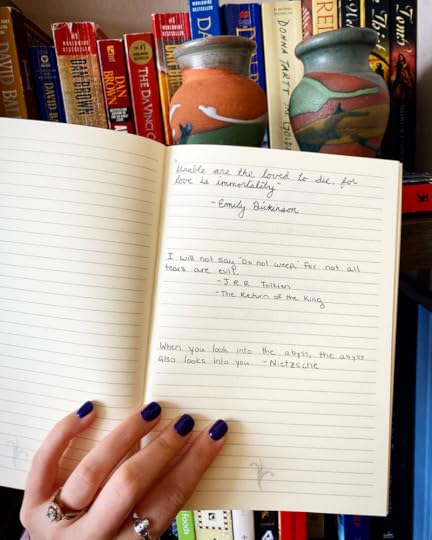 DAVID BA
DAVID
#1 WORLDWIDE
DAN BROWN
DAN BROWN
THE DA VINCI
DONNA TARTT THE GOL
Thief
Tomb
"Unable are the loved to die, for
love is immortality"
-Emily Dickinson
I will not say "Do not weep," for not all
tears are evil.
-J.R.R. Tolkien
-The Return of the King
When you look into the abyss, the abyss
also looks into you. -Nietzsche
Foods